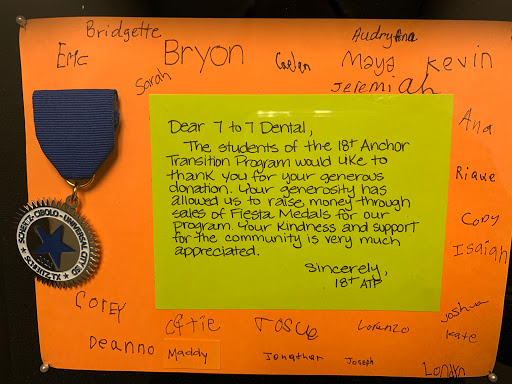 Bridgette
Audryana
EMC
Bryon
Caelen
Maya
Kevin
Sarah
Jeremiah
Dear 7 to 7 Dental,
The students of the 18+ Anchor
Transition Program would like to
thank you for your generous
donation. Your generosity has
allowed us to raise money through
sales of Fiesta Medals for our
program. Your kindness and support
for the community is very much
appreciated.
Sincerely,
18+ ATP
Ana
Rique
Cody
Isaiah
SCHERTZ-CIBOLO-UNIVERSAL CITY ISD
SCHERTZ, TX
Corey
Josue
Lorenzo
Joshua
Kate
Deanno
Maddy
Jonathan
Joseph
London